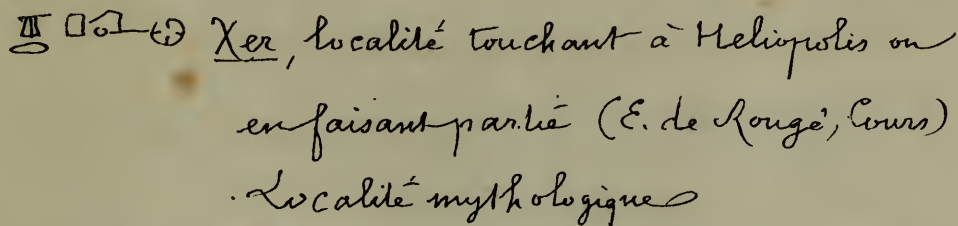 Xer, localité touchant à Heliopolis ou
en faisant partie (E. de Rougé, Cours)
. Localité mythologique